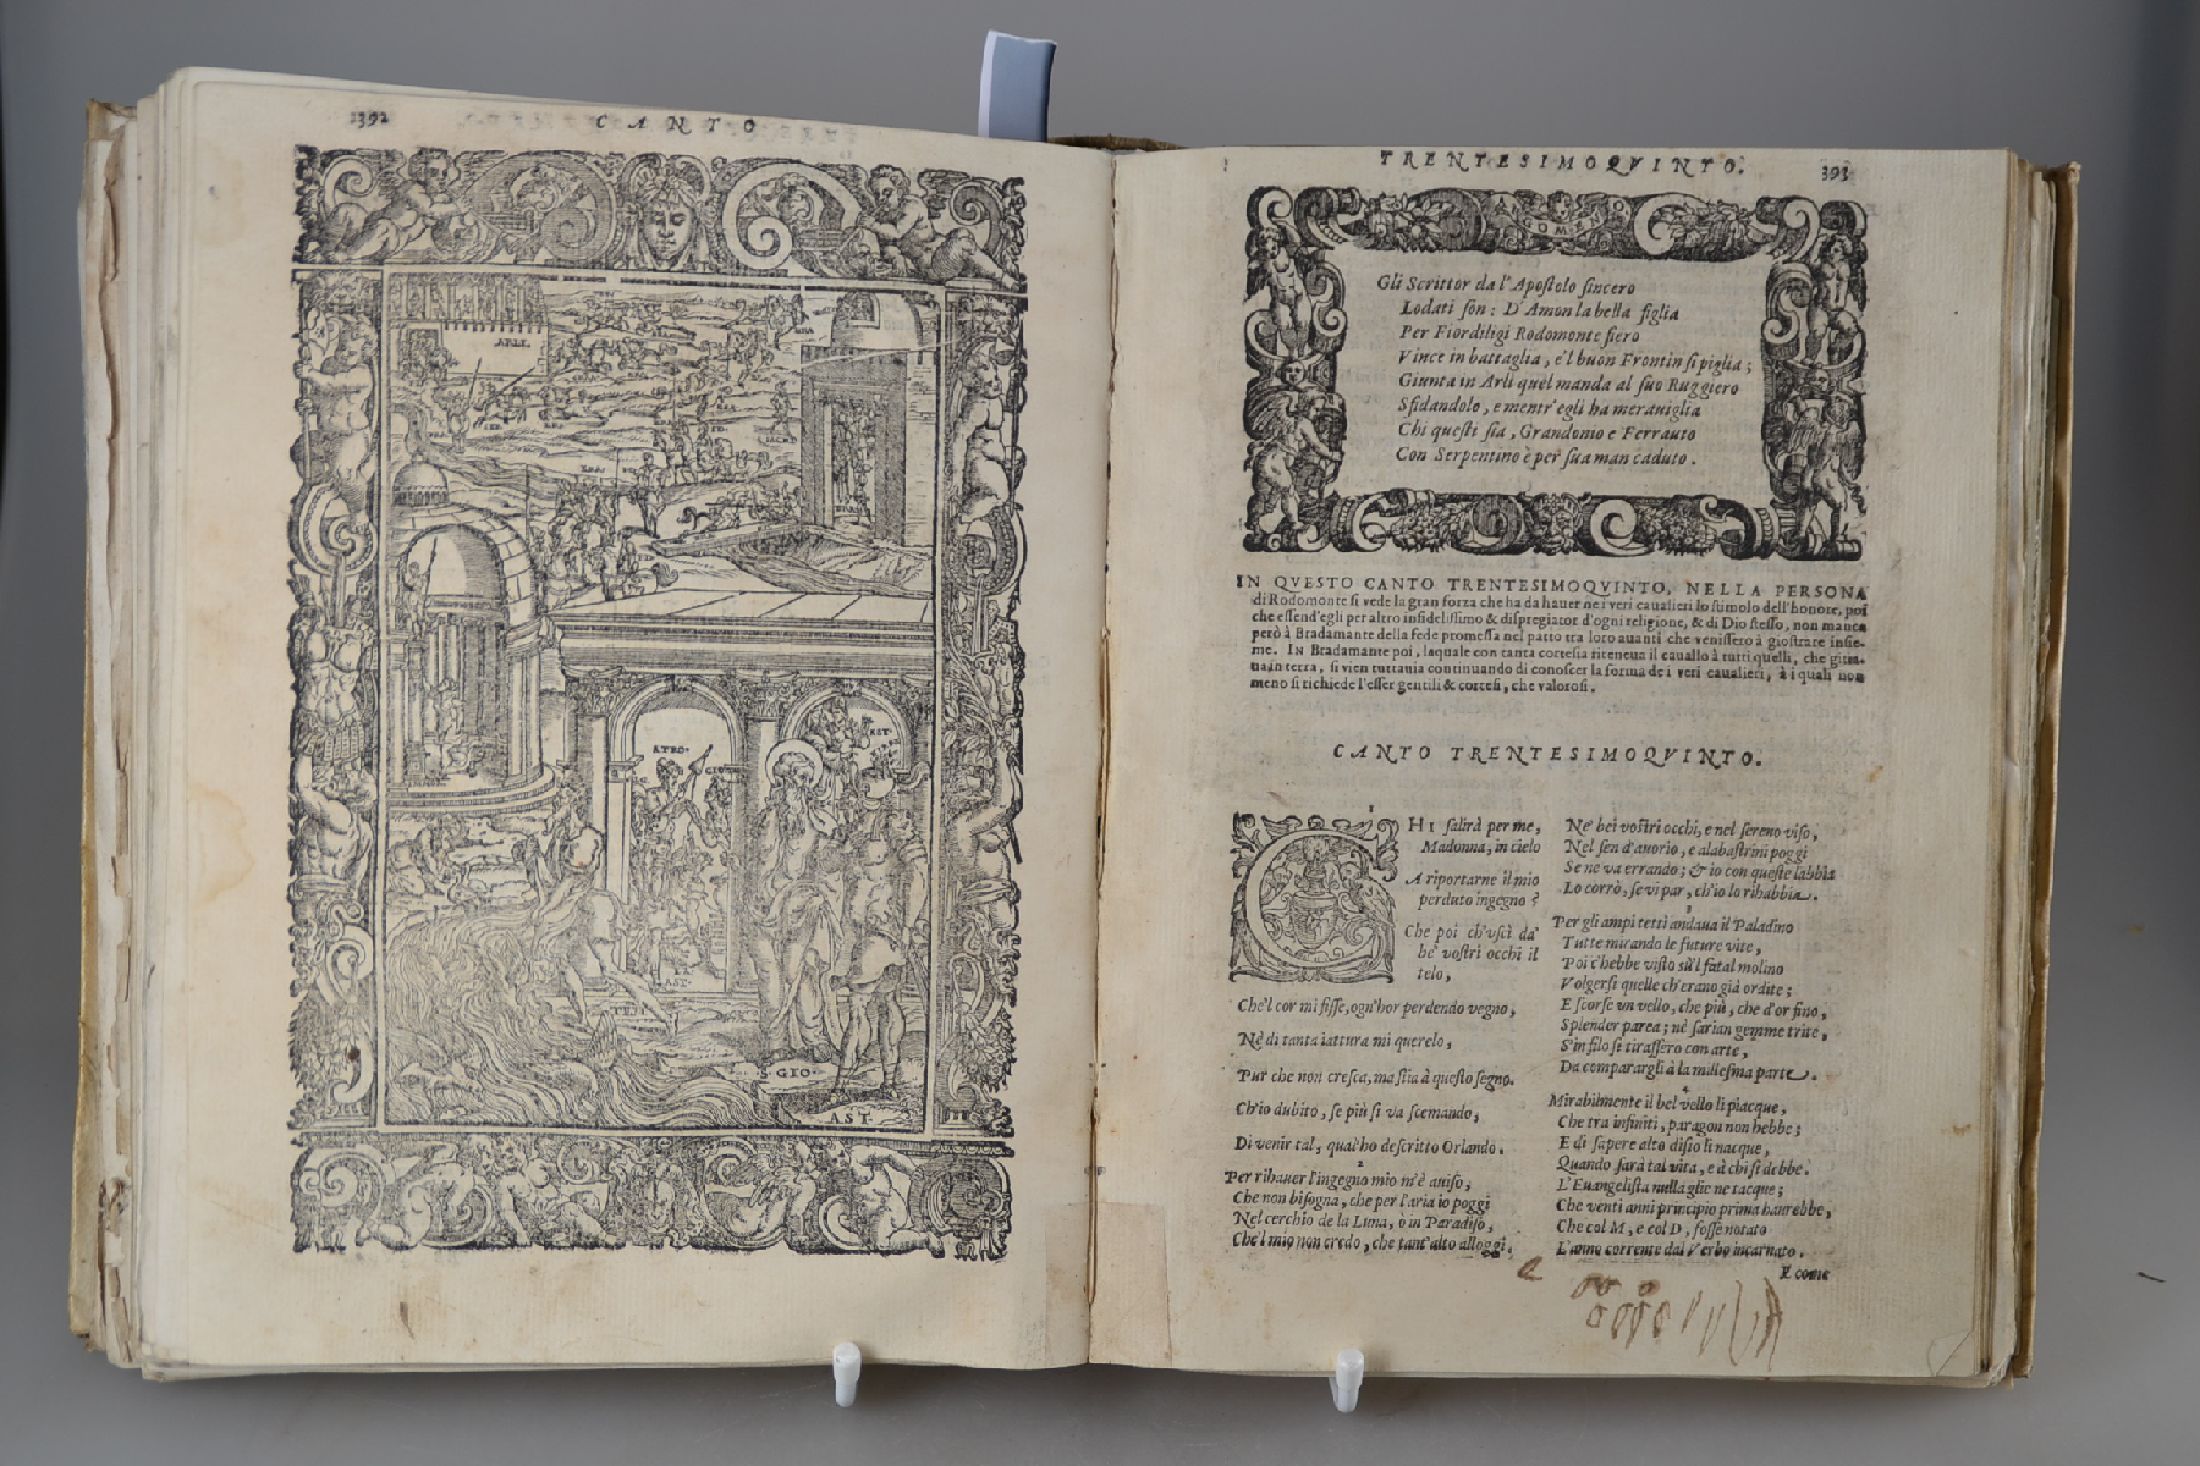 1392
CANTO
ARLI.
ATRO.
AST.
S. GIO.
AST.
TRENTESIMOQVINTO.
393
Gli Scrittor da l'Apoſtolo ſincero
Lodati ſon: D'Amon la bella figlia
Per Fiordiligi Rodomonte fiero
Vince in battaglia, e'l buon Frontin ſi piglia;
Giunta in Arli quel manda al ſuo Ruggiero
Sfidandolo, e mentr'egli ha merauiglia
Chi queſti ſia, Grandonio e Ferrauto
Con Serpentino è per ſua man caduto.
IN QVESTO CANTO TRENTESIMOQVINTO, NELLA PERSONA
di Rodomonte ſi vede la gran forza che ha da hauer ne i veri caualieri lo ſtimolo dell'honore, poi
che eſſend'egli per altro infideliſſimo & diſpregiator d'ogni religione, & di Dio ſteſſo, non manca
però à Bradamante della fede promeſſa nel patto tra loro auanti che veniſſero à gioſtrare inſie-
me. IN Bradamante poi, laquale con tanta corteſia riteneua il cauallo à tutti quelli, che gitta-
ua in terra, ſi vien tuttauia continuando di conoſcer la forma de i veri caualieri, à i quali non
meno ſi richiede l'eſſer gentili & corteſi, che valoroſi.
CANTO TRENTESIMOQVINTO.
1
CHI ſalirà per me,
Madonna, in cielo
A riportarne il mio
perduto ingegno?
Che poi ch'vſcì da'
be' voſtri occhi il
telo,
Che'l cor mi fiſſe, ogn'hor perdendo vegno,
Nè di tanta iattura mi querelo,
Pur che non creſca, ma ſtia à queſto ſegno.
Ch'io dubito, ſe più ſi va ſcemando,
Di venir tal, qual'ho deſcritto Orlando.
2
Per rihauer l'ingegno mio m'è auiſo,
Che non biſogna, che per l'aria io poggi
Nel cerchio de la Luna, ò in Paradiſo,
Che'l mio non credo, che tant'alto alloggi.
Ne' bei voſtri occhi, e nel ſereno viſo,
Nel ſen d'auorio, e alabaſtrini poggi
Se ne va errando; & io con queſte labbia
Lo corrò, ſe vi par, ch'io lo rihabbia.
3
Per gli ampi tetti andaua il Paladino
Tutte mirando le future vite,
Poi c'hebbe viſto sù'l fatal molino
Volgerſi quelle ch'erano già ordite;
E ſcorſe vn vello, che più, che d'or fino,
Splender parea; nè ſarian gemme trite,
S'in filo ſe tiraſſero con arte,
Da comparargli à la milleſima parte.
4
Mirabilmente il bel vello li piacque,
Che tra infiniti, paragon non hebbe;
E di ſapere alto diſio li nacque,
Quando ſarà tal vita, e à chi ſi debbe.
L'Euangeliſta nulla glie ne tacque;
Che venti anni principio prima haurebbe,
Che col M, e col D, foſſe notato
L'anno corrente dal Verbo incarnato.
E come